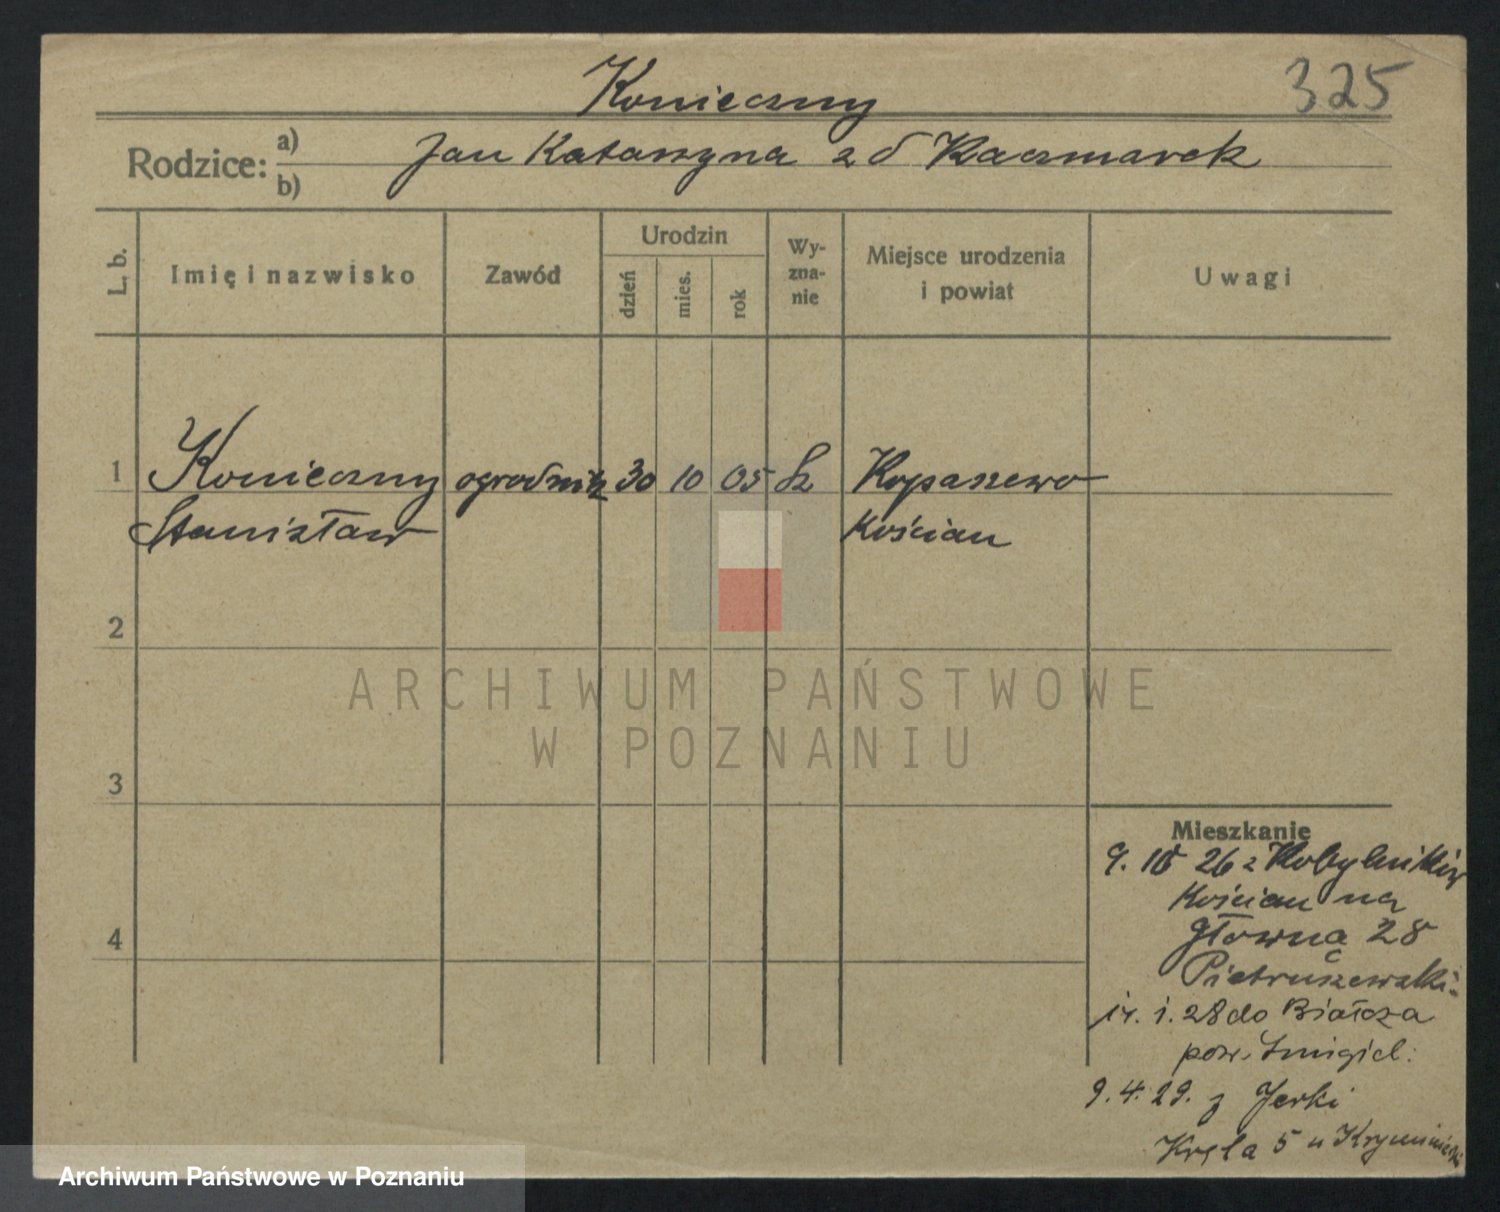 Konieczny
325
Rodzice: a) Jan Katarzyna z d Kaczmarek
b)
L. b.
Imię i nazwisko
Zawód
Urodzin
dzień
mies.
rok
Wy-
zna-
nie
Miejsce urodzenia
i powiat
Uwagi
1 Konieczny ogrodnik 30 10 05 Kopaszewo
Stanisław Kościan
2
ARCHIWUM PAŃSTWOWE
W POZNANIU
3
Mieszkanie
9. 10 26 z Kobylnik
Kościan na
4
Główną 28
Pietruszewski
1. 28 do Białcza
pow. Śmigiel.
9. 4. 29. z Jerki
5 u
Archiwum Państwowe w Poznaniu